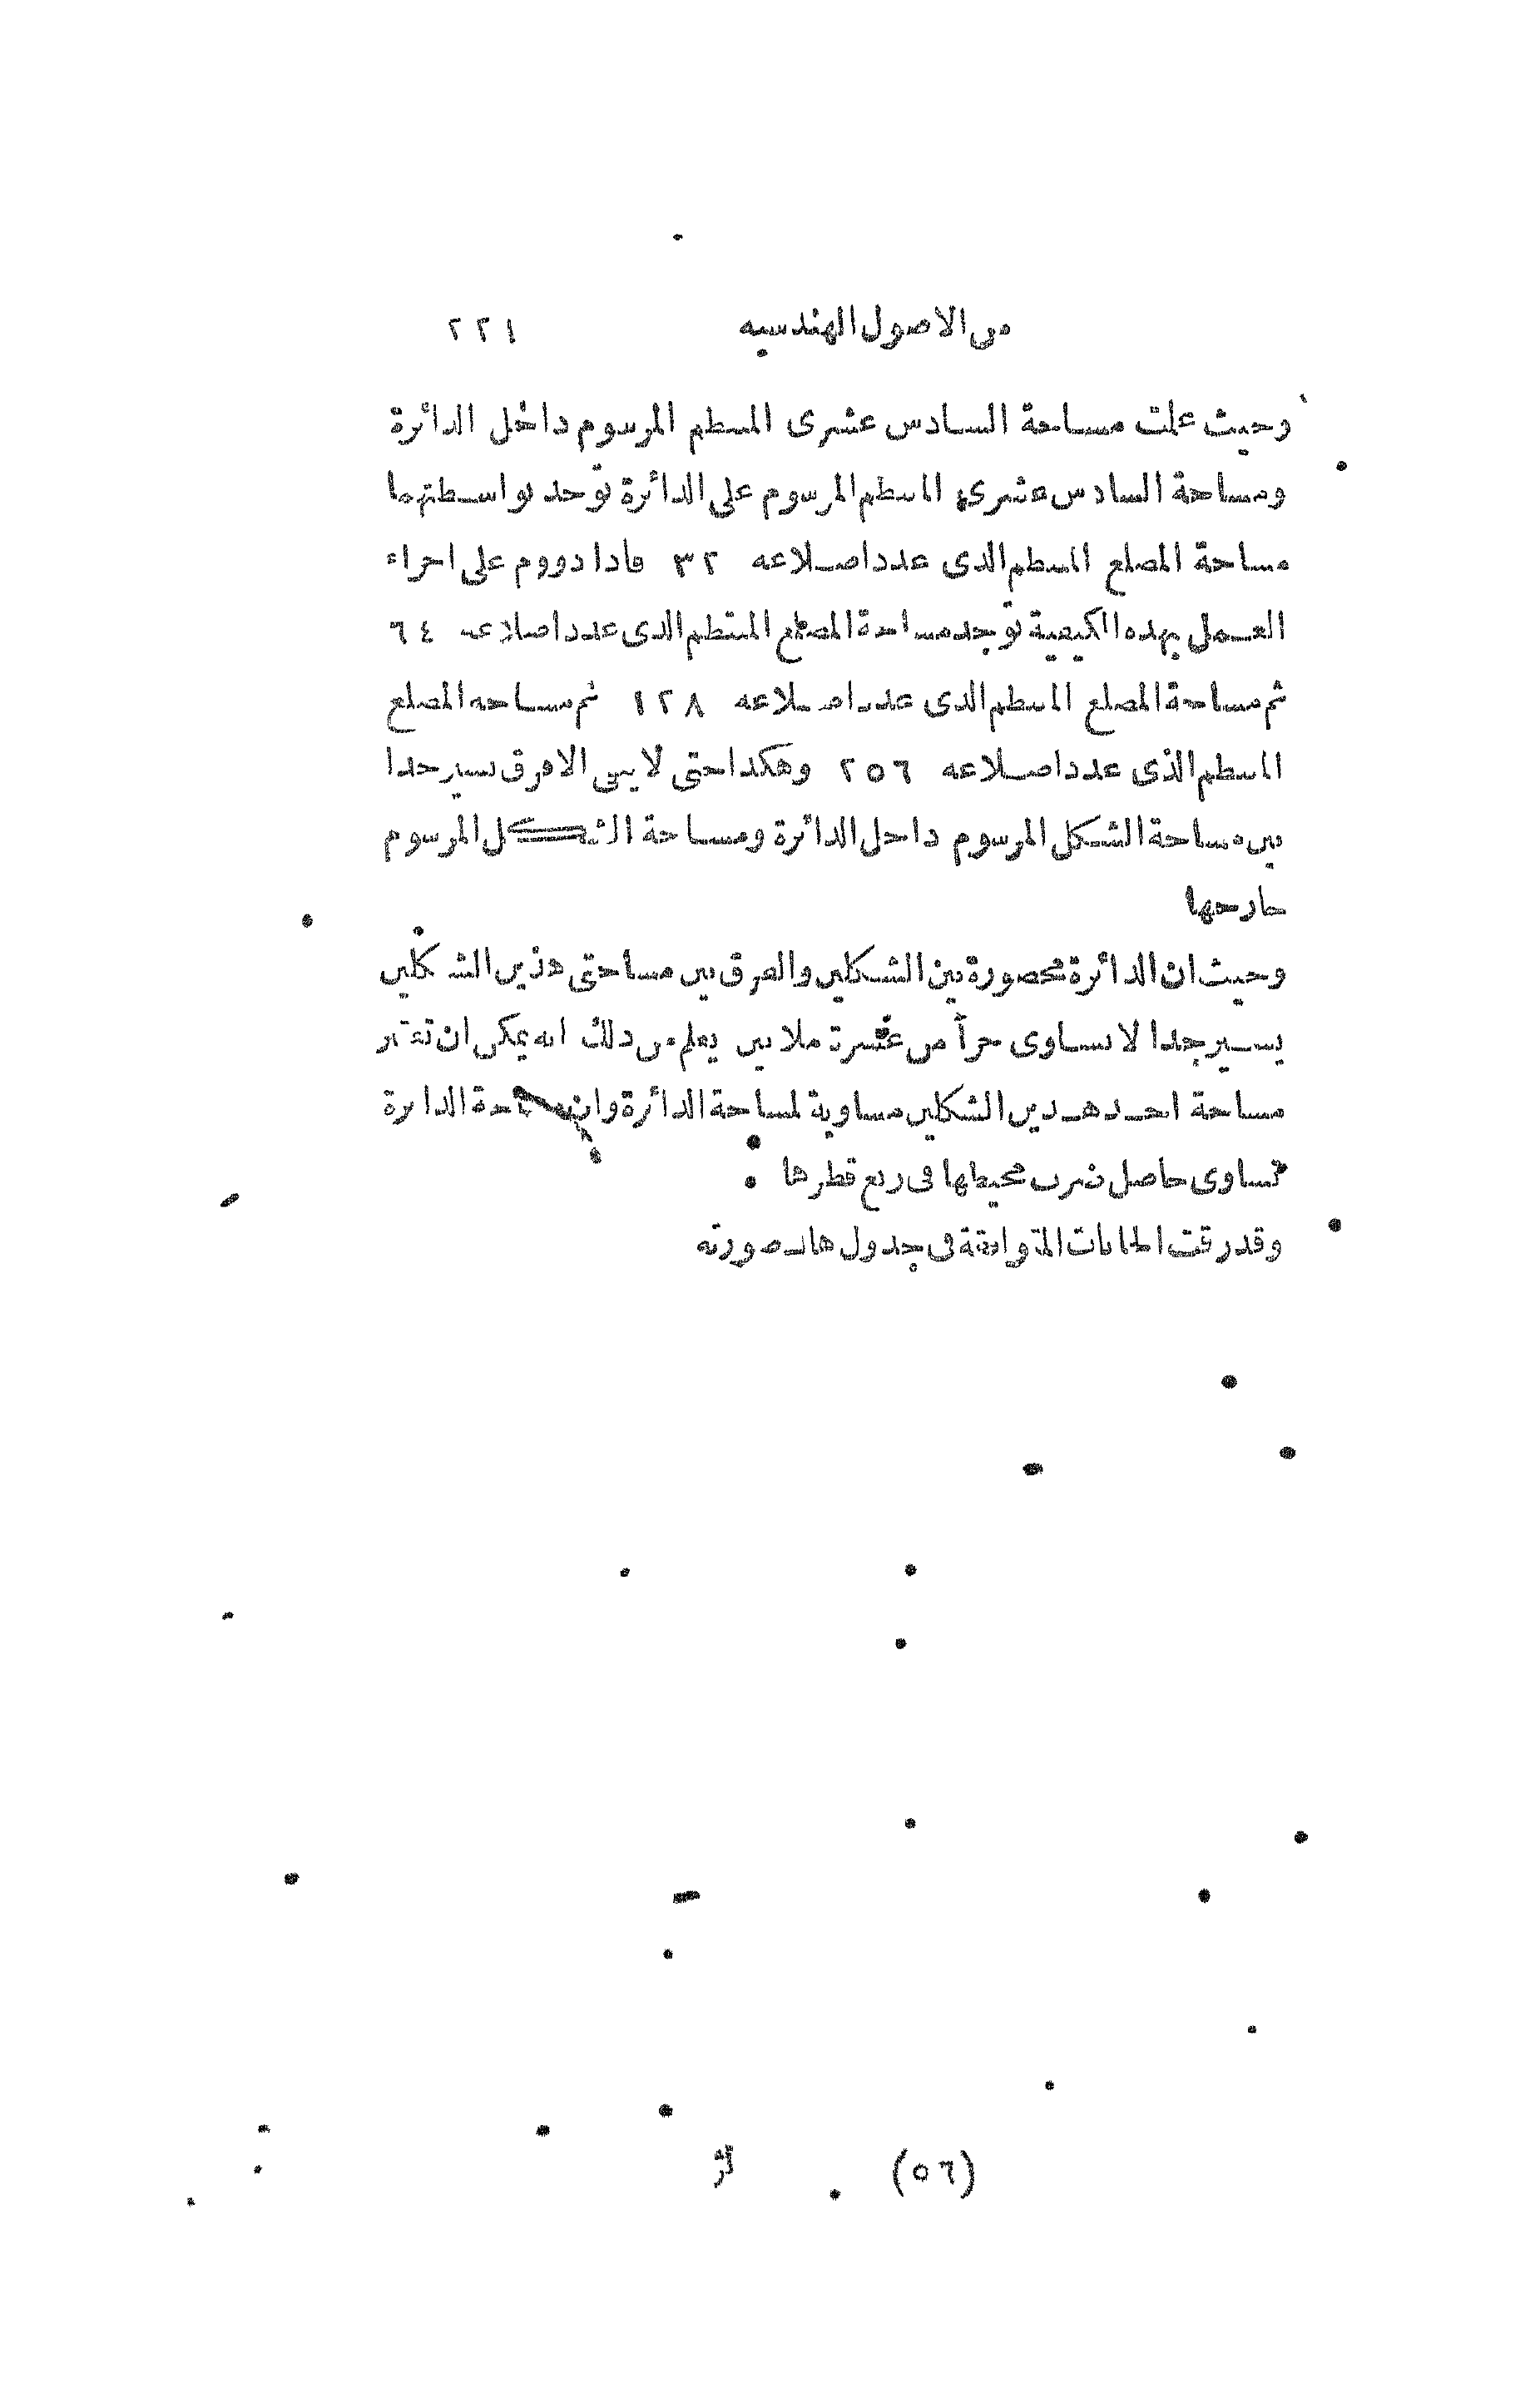 من الاصول الهندسيه ٢٢١
وحيث علمت مساحة السادس عشرى المنتظم المرسوم داخل الدائرة
ومساحة السادس عشرى المنتظم المرسوم على الدائرة توجد بواسطتهما
مساحة المضلع المنتظم الذى عدد اضلاعه ٣٢ فاذا دووم على اجراء
العمل بهذه الكيفية توجد مساحة المضلع المنتظم الذى عدد اضلاعه ٦٤
ثم مساحة المضلع المنتظم الذى عدد اضلاعه ١٢٨ ثم مساحه المضلع
المنتظم الذى عدد اضلاعه ٢٥٦ وهكذا حتى لا يبقى الا فرق يسير جدا
بين مساحة الشكل المرسوم داخل الدائرة ومساحة الشكل المرسوم
خارجها
وحيث ان الدائرة محصورة بين الشكلين والفرق بين مساحتى هذين الشكلين
يسير جدا لا يساوى جزأ من عشرة ملايين يعلم من ذلك انه يمكن ان تعتبر
مساحة احد هذين الشكلين مساوية لمساحة الدائرة وان مساحة الدائرة
تساوى حاصل ضرب محيطها فى ربع قطرها
وقد رقمت الحانات المتوافقة فى جدول هاك صورته
(٥٦)